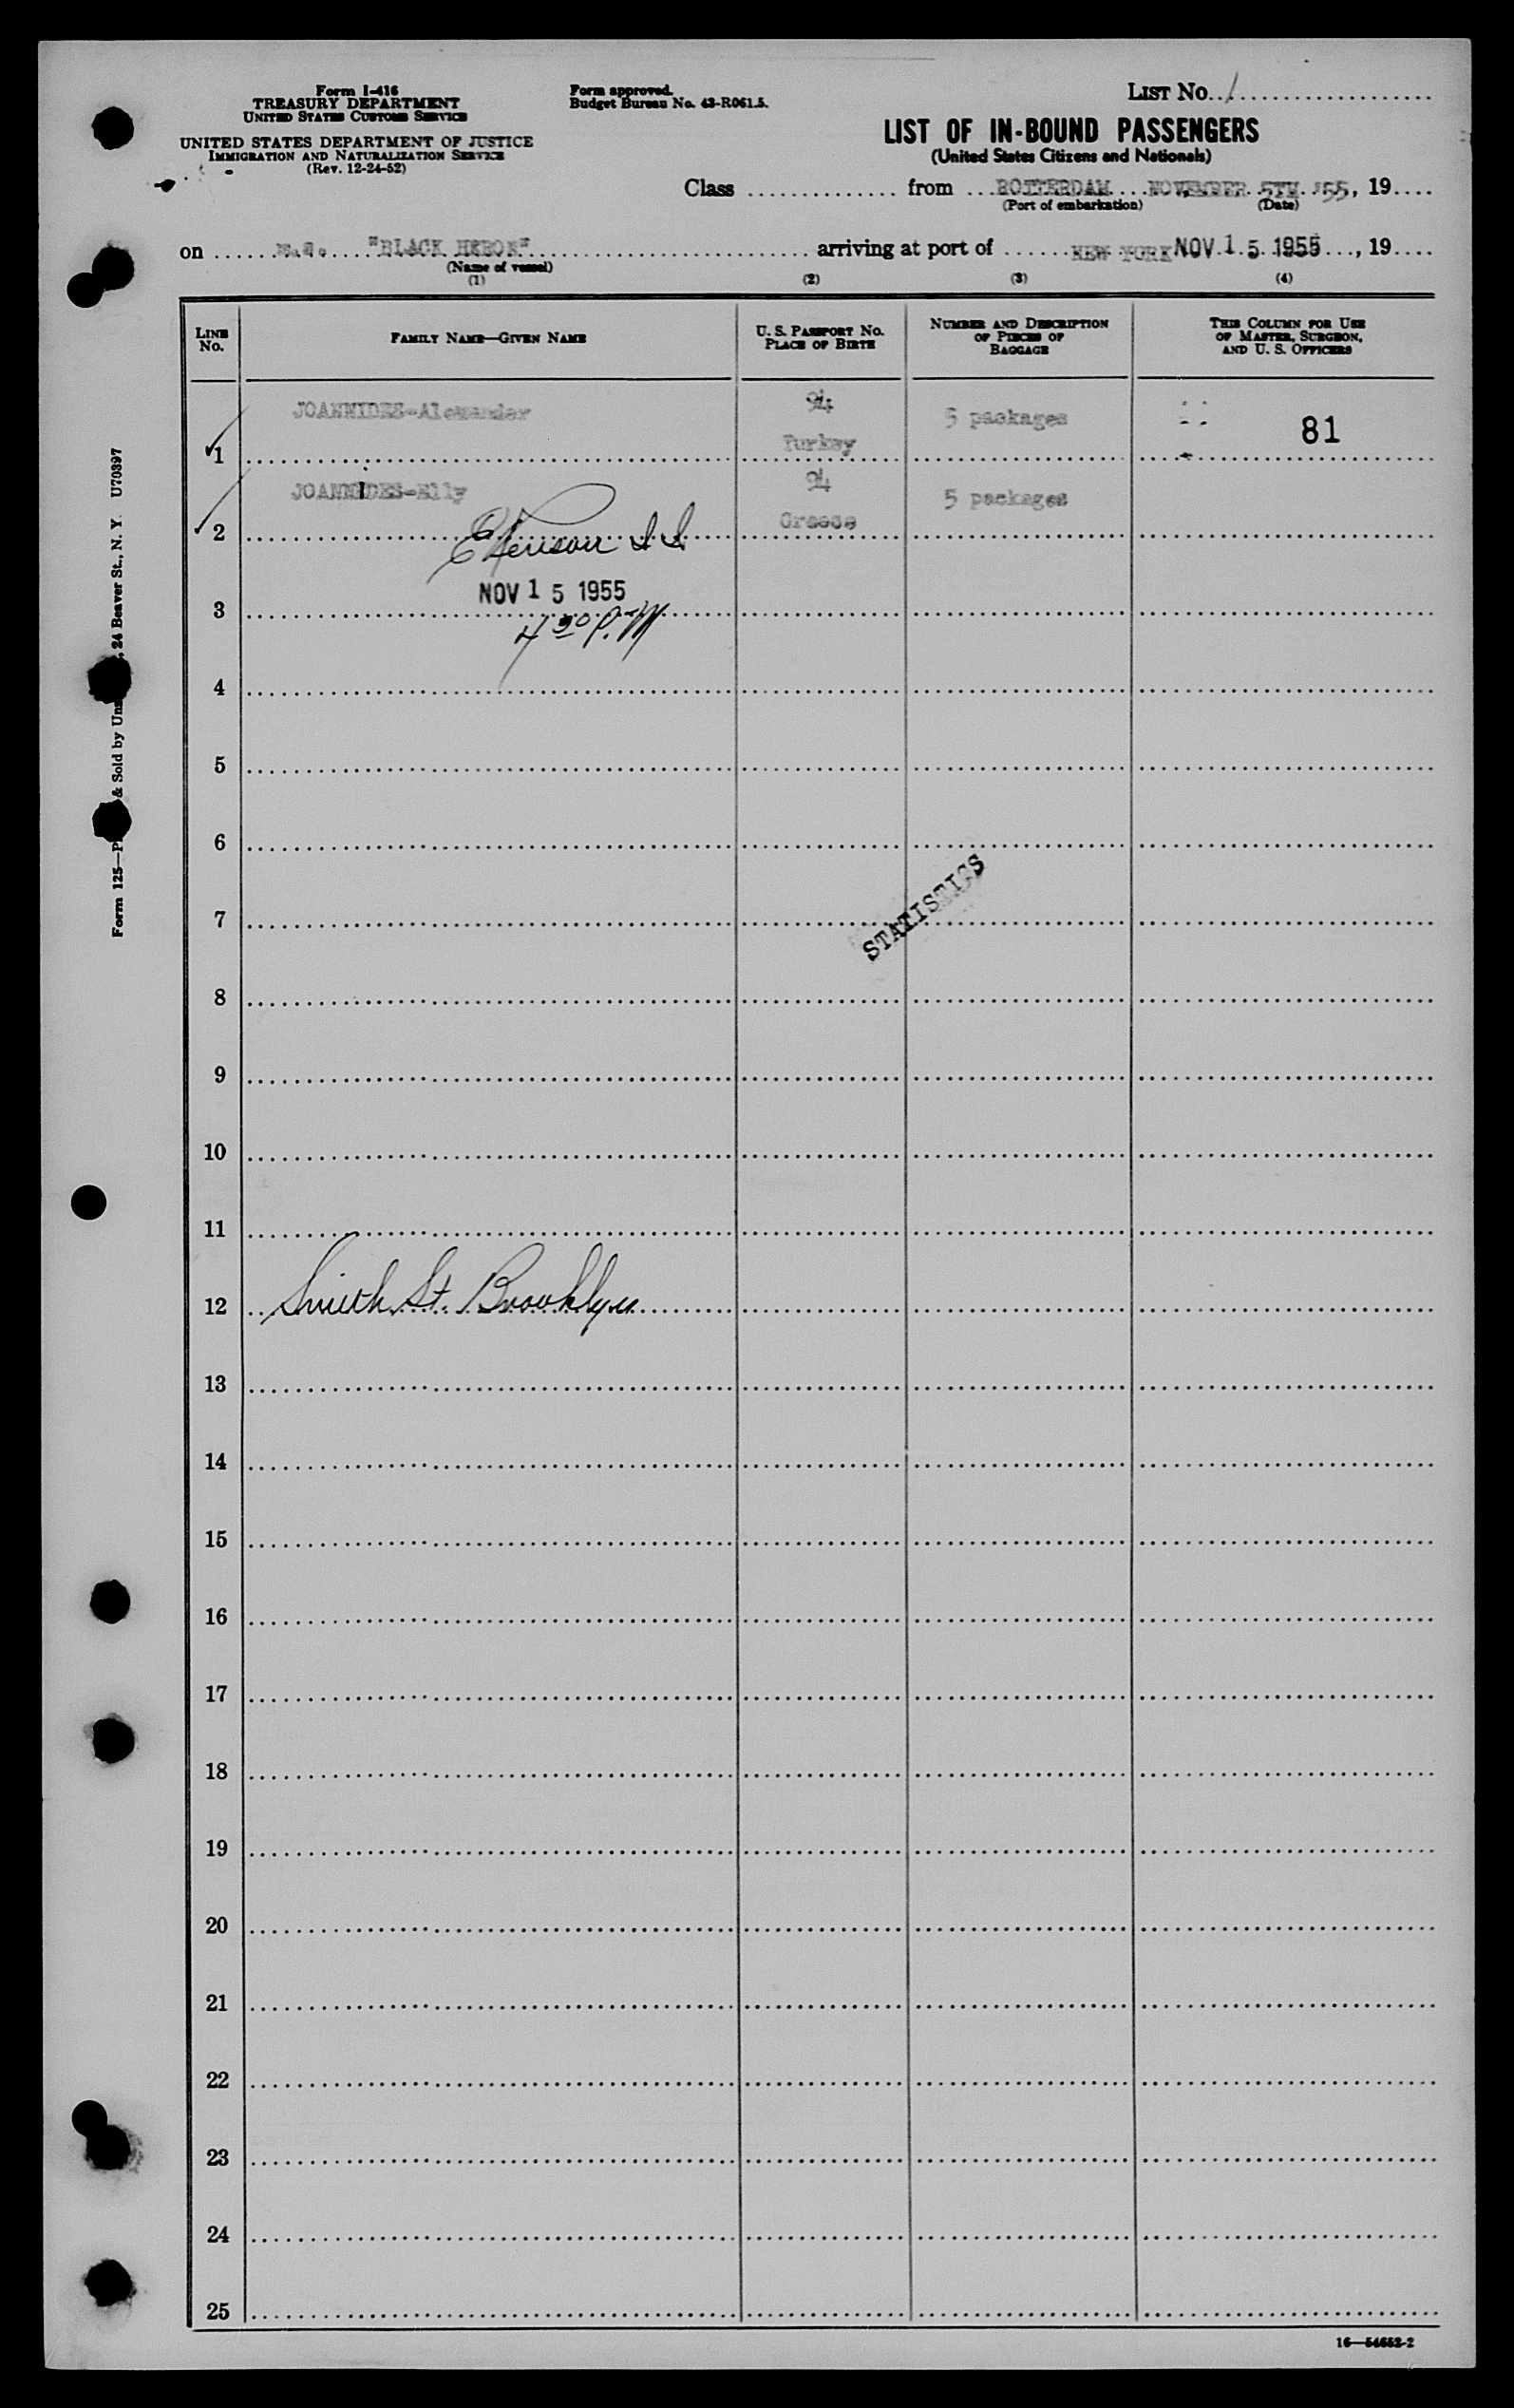 Form I-416
TREASURY DEPARTMENT
UNITED STATES CUSTOMS SERVICE
UNITED STATES DEPARTMENT OF JUSTICE
IMMIGRATION AND NATURALIZATION SERVICE
(Rev. 12-24-52)
Form approved.
Budget Bureau No. 43-R061.5.
LIST No. 1
LIST OF IN-BOUND PASSENGERS
(United States Citizens and Nationals)
Class from ROTTERDAM NOVEMBER 5TH '55, 19
(Port of embarkation) (Date)
on m.s. "BLACK HERON" arriving at port of NEW YORK NOV 15 1955, 19
(Name of vessel)
(1) (2) (3) (4)
LINE No. FAMILY NAME—GIVEN NAME U. S. PASSPORT NO. PLACE OF BIRTH NUMBER AND DESCRIPTION OF PIECES OF BAGGAGE THIS COLUMN FOR USE OF MASTER, SURGEON, AND U. S. OFFICERS
1 JOANNIDES-Alexander 94 Turkey 5 packages 81
2 JOANNIDES-Elly 94 Greece 5 packages
NOV 15 1955
3 4 30 P.M
4
5
6
STATISTICS
7
8
9
10
11
12 Smith St. Brooklyn
13
14
15
16
17
18
19
20
21
22
23
24
25
16—54652-2
Form 125—P & Sold by Un , 24 Beaver St., N. Y. U70397